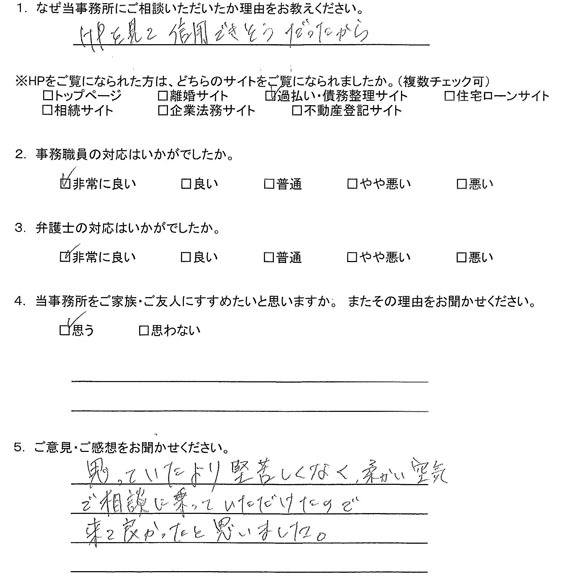 1. なぜ当事務所にご相談いただいたか理由をお教えください。
HPを見て信用できそうだったから
※HPをご覧になられた方は、どちらのサイトをご覧になられましたか。(複数チェック可)
□トップページ □離婚サイト ☑過払い・債務整理サイト □住宅ローンサイト
□相続サイト □企業法務サイト □不動産登記サイト
2. 事務職員の対応はいかがでしたか。
☑非常に良い □良い □普通 □やや悪い □悪い
3. 弁護士の対応はいかがでしたか。
☑非常に良い □良い □普通 □やや悪い □悪い
4. 当事務所をご家族・ご友人にすすめたいと思いますか。 またその理由をお聞かせください。
☑思う □思わない
5. ご意見・ご感想をお聞かせください。
思っていたより堅苦しくなく、柔かい空気
で相談に乗っていただけたので
来て良かったと思いました。